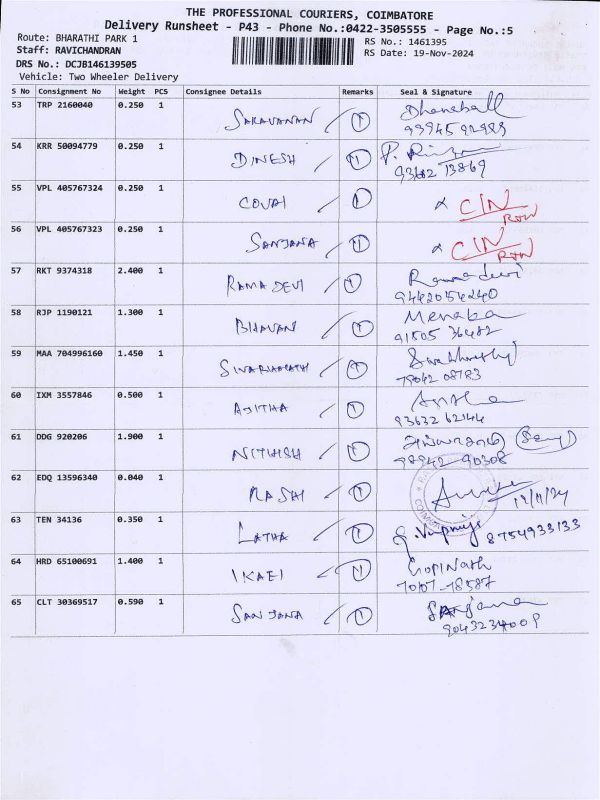 THE PROFESSIONAL COURIERS, COIMBATORE
Delivery Runsheet - P43 - Phone No.:0422-3505555 - Page No.:5
Route: BHARATHI PARK 1
RS No.: 1461395
Staff: RAVICHANDRAN
RS Date: 19-Nov-2024
DRS No.: DCJB146139505
Vehicle: Two Wheeler Delivery
S No Consignment No Weight PCS Consignee Details Remarks Seal & Signature
53 TRP 2160040 0.250 1 SARAVANAN Dhanaball
54 KRR 50094779 0.250 1 DINESH
93602 73869
55 VPL 405767324 0.250 1 COVAI CIN
56 VPL 405767323 0.250 1 SANJANA CIN
57 RKT 9374318 2.400 1 RAMA DEVI Ramadevi
9442054240
58 RJP 1190121 1.300 1 BHAVANI Menaka
91505 36482
59 MAA 704996160 1.450 1
79042 08783
60 IXM 3557846 0.500 1 AJITHA
93632 62144
61 DDG 920206 1.900 1 NITHISH
98942-90308
62 EDQ 13596340 0.040 1 RASHI 19/11/24
63 TEN 34136 0.350 1 LATHA 8754933133
64 HRD 65100691 1.400 1 IKAEI Gopinath
65 CLT 30369517 0.590 1 SANJANA Sanjana